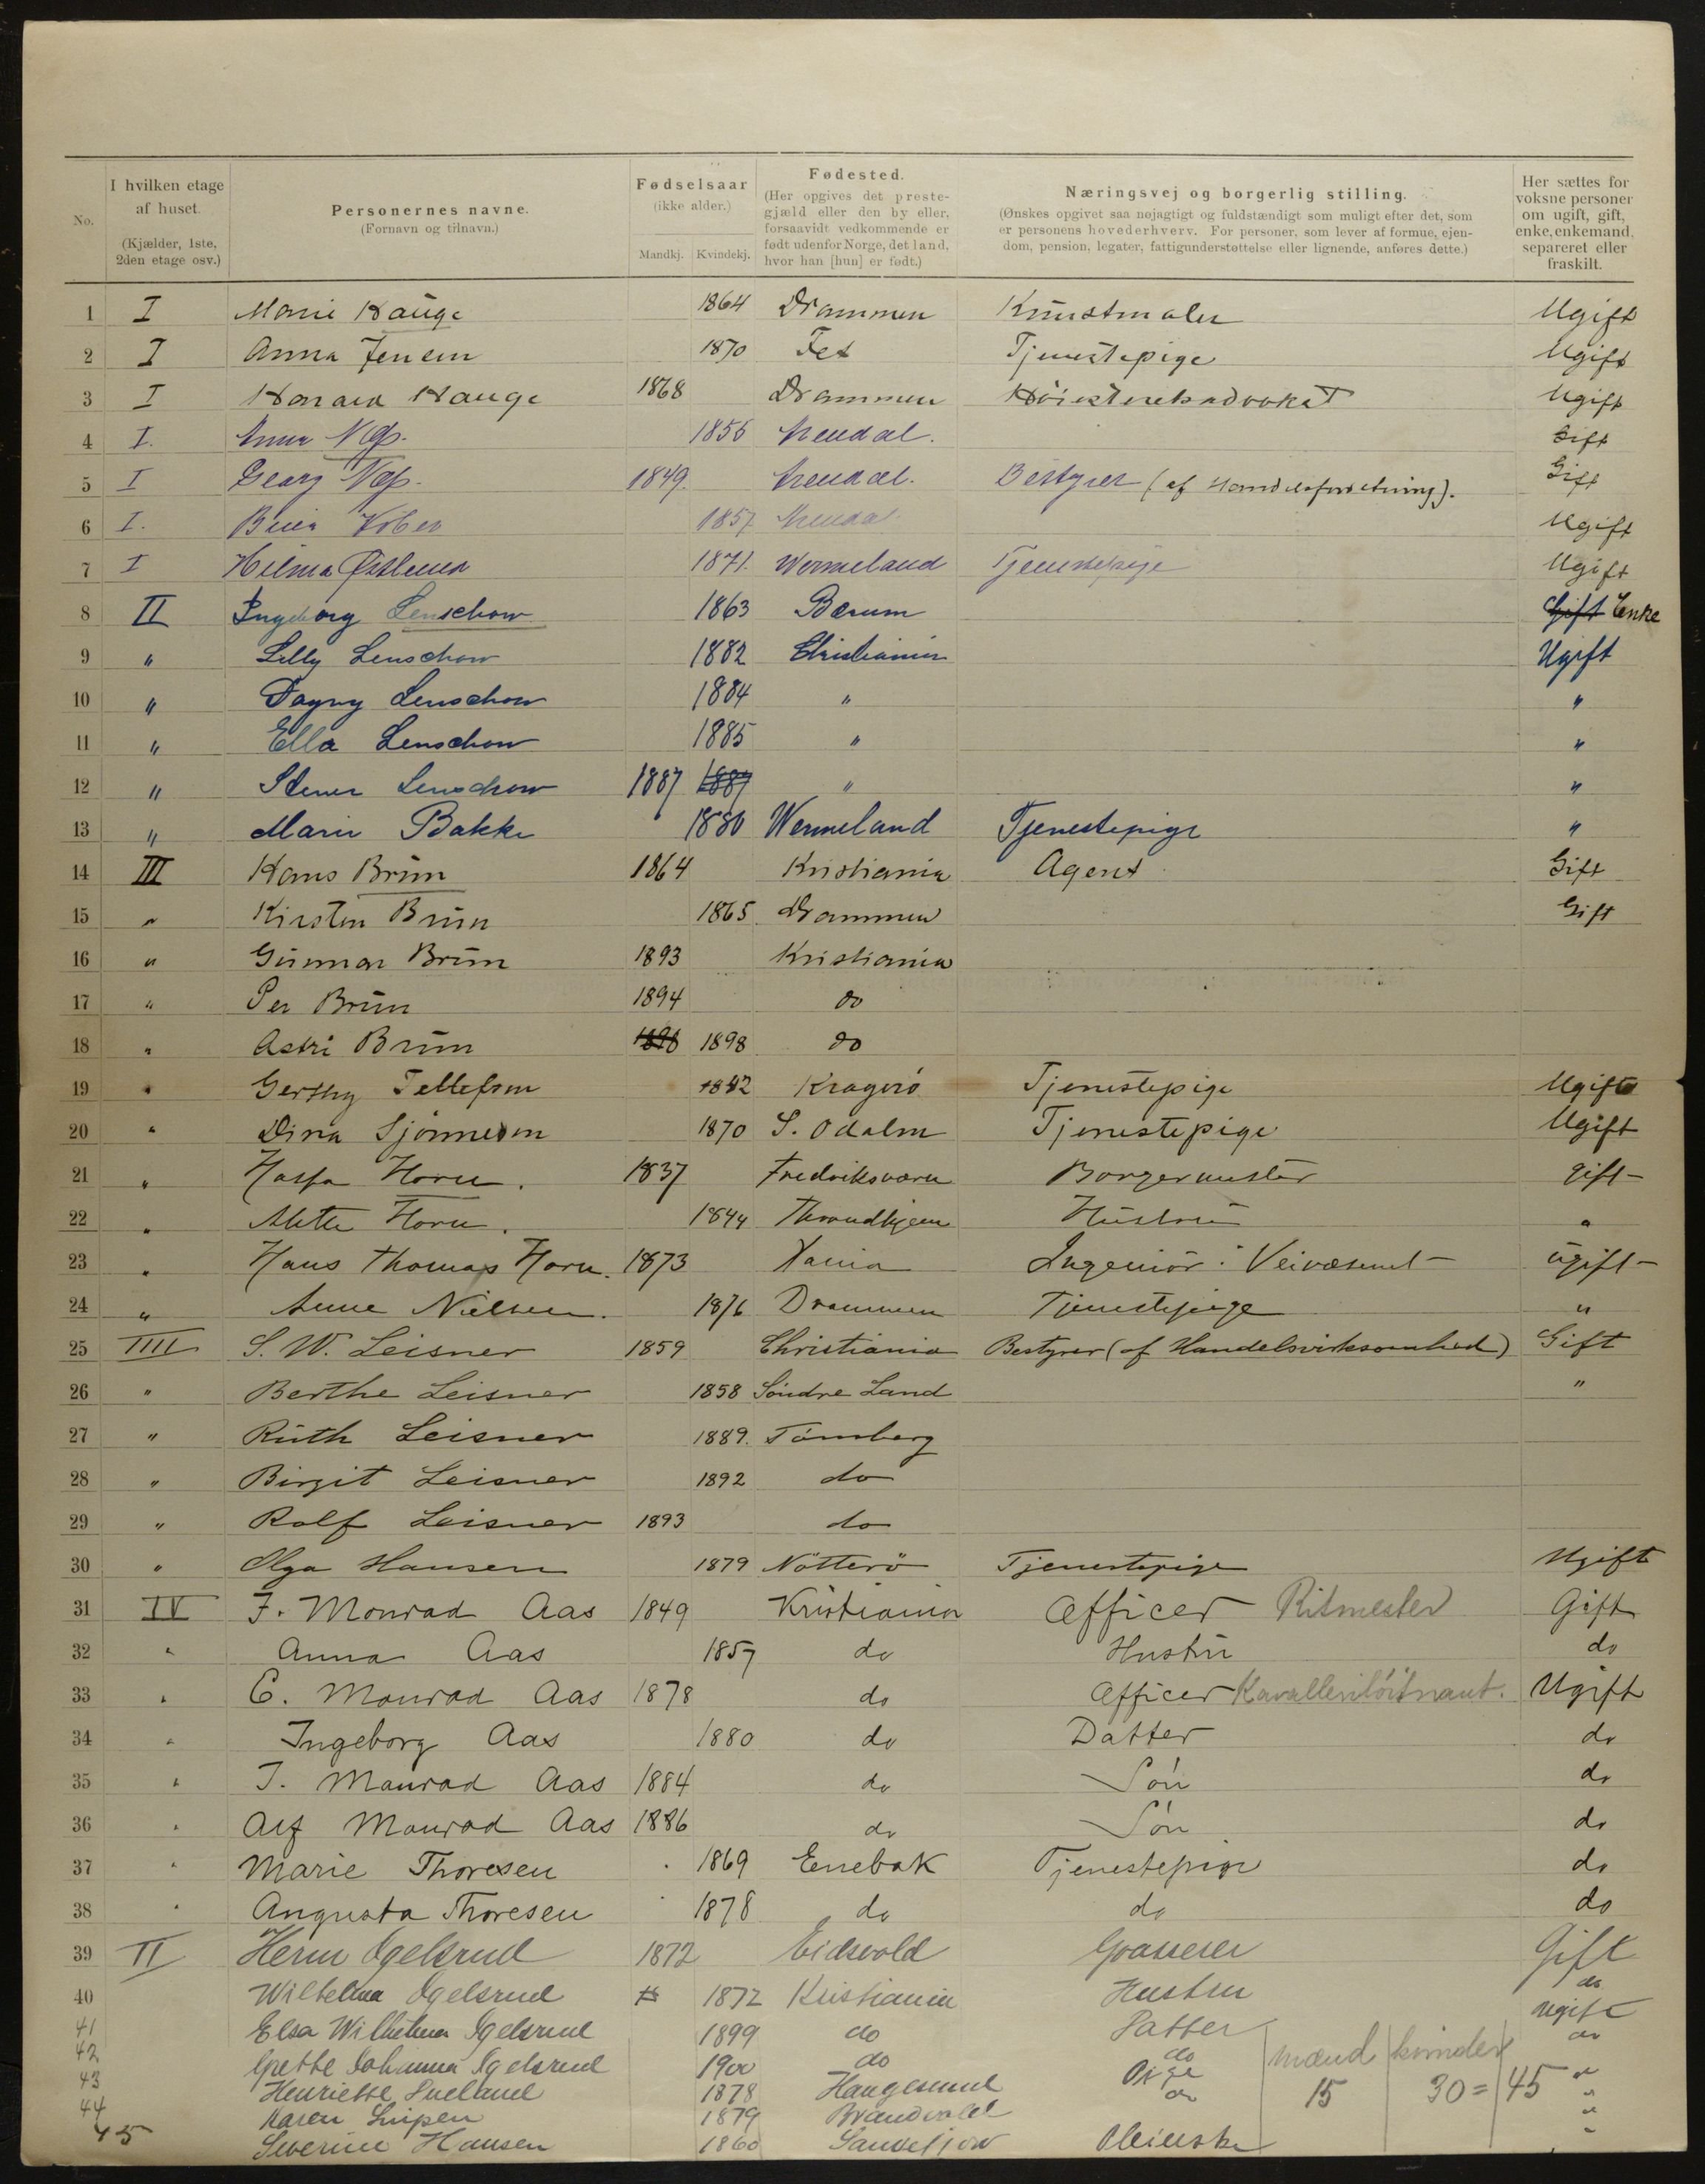 No.
I hvilken etage af huset. (Kjælder, 1ste, 2den etage osv.)
Personernes navne. (Fornavn og tilnavn.)
Fødselsaar (ikke alder.) Mandkj. Kvindekj.
Fødested. (Her opgives det prestegjæld eller den by eller, forsaavidt vedkommende er født udenfor Norge, det land, hvor han [hun] er født.)
Næringsvej og borgerlig stilling. (Ønskes opgivet saa nøjagtigt og fuldstændigt som muligt efter det, som er personens hovederhverv. For personer, som lever af formue, ejendom, pension, legater, fattigunderstøttelse eller lignende, anføres dette.)
Her sættes for voksne personer om ugift, gift, enke, enkemand, separeret eller fraskilt.
1 I Marie Hauge 1864 Drammen Kunstmaler Ugift
2 I Anna Jensen 1870 Fet Tjenestepige Ugift
3 I Harald Hauge 1868 Drammen Høiesteretsadvokat Ugift
4 I. Anna 1856 Arendal. Gift
5 I Georg 1849. Arendal. Bestyrer (af Handelsforretning). Gift
6 I. 1857 Arendal Ugift
7 I Hilma Østlund 1871. Wermeland Tjenestepige Ugift
8 II Ingeborg Lenschow 1863 Bærum Gift Enke
9 " Lilly Lenschow 1882 Christiania Ugift
10 " Dagny Lenschow 1884 " "
11 " Ella Lenschow 1885 " "
12 " Stener Lenschow 1887 1887 " "
13 " Marie Bakke 1880 Wermeland Tjenestepige "
14 III Hans Brun 1864 Kristiania Agent Gift
15 " Kirsten Brun 1865 Drammen Gift
16 " Gunnar Brun 1893 Kristiania
17 " Per Brun 1894 do
18 " Astri Brun 1898 1898 do
19 " Tellefsen 1842 Kragerö Tjenestepige Ugift
20 " Dina 1870 S. Odalen Tjenestepige Ugift
21 " Horn. 1837 Fredriksværn Borgermester gift
22 " Horn. 1844 Throndhjem Hustru "
23 " Hans Thomas Horn. 1873 Xania Ingeniör i Veivæsenet ugift
24 " Anne Nielsen. 1876 Drammen Tjenestepige "
25 IIII S. W. Leisner 1859 Christiania Bestyrer (af Handelsvirksomhed) Gift
26 " Berthe Leisner 1858 Söndre Land "
27 " Ruth Leisner 1889. Tönsberg
28 " Birgit Leisner 1892 do
29 " Rolf Leisner 1893 do
30 " Olga Hansen 1879 Nötterö Tjenestepige Ugift
31 IV F. Monrad Aas 1849 Kristiania Officer Ritmester Gift
32 " Anna Aas 1857 do Hustru do
33 " C. Monrad Aas 1878 do Officer Kavallerilöitnant. Ugift
34 " Ingeborg Aas 1880 do Datter do
35 " J. Monrad Aas 1884 do Sön do
36 " Alf Monrad Aas 1886 do Sön do
37 " Marie Thoresen 1869 Enebak Tjenestepige do
38 " Augusta Thoresen 1878 do do do
39 II Herm Ogelsrud 1872 Eidsvold Grosserer Gift
40 Wilhelma Ogelsrud 1872 Kristiania Hustru do
41 Elsa Wilhelma Ogelsrud 1899 do Datter ugift
42 Grethe Johanna Ogelsrud 1900 do do do
43 Henriette 1878 Haugesund Pige "
44 Karen 1879 Brandvold do "
45 Severine Hansen 1860 "
mænd kvinder
15 30 = 45